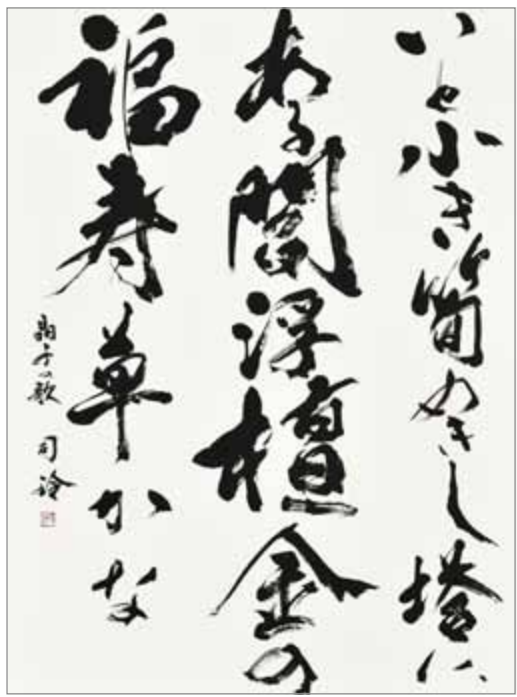 いと小き筒ぬきし塔に
ある閻浮檀金の
福寿草かな
晶子の歌 司谷